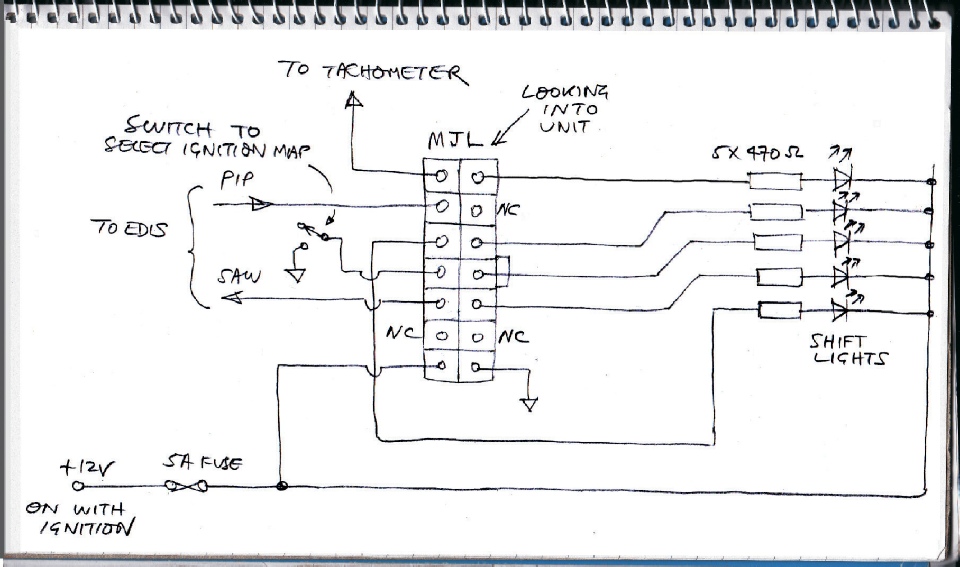 TO TACHOMETER
LOOKING
INTO
UNIT
SWITCH TO
SELECT IGNITION MAP
MJL
5X 470Ω
PIP
NC
TO EDIS
SAW
NC
NC
SHIFT
LIGHTS
+12V
5A FUSE
ON WITH
IGNITION